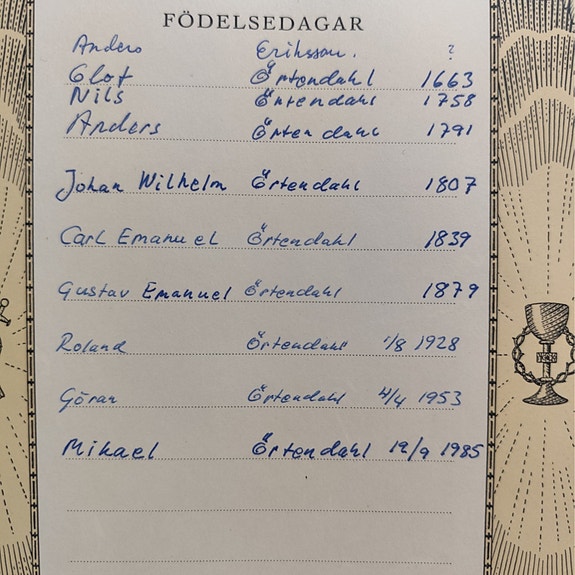 FÖDELSEDAGAR
Anders Eriksson. ?
Olof Örtendahl 1663
Nils Örtendahl 1758
Anders Örtendahl 1791
Johan Wilhelm Örtendahl 1807
Carl Emanuel Örtendahl 1839
Gustav Emanuel Örtendahl 1879
Roland Örtendahl 1/8 1928
Göran Örtendahl 1953
Mikael Örtendahl 19/9 1985